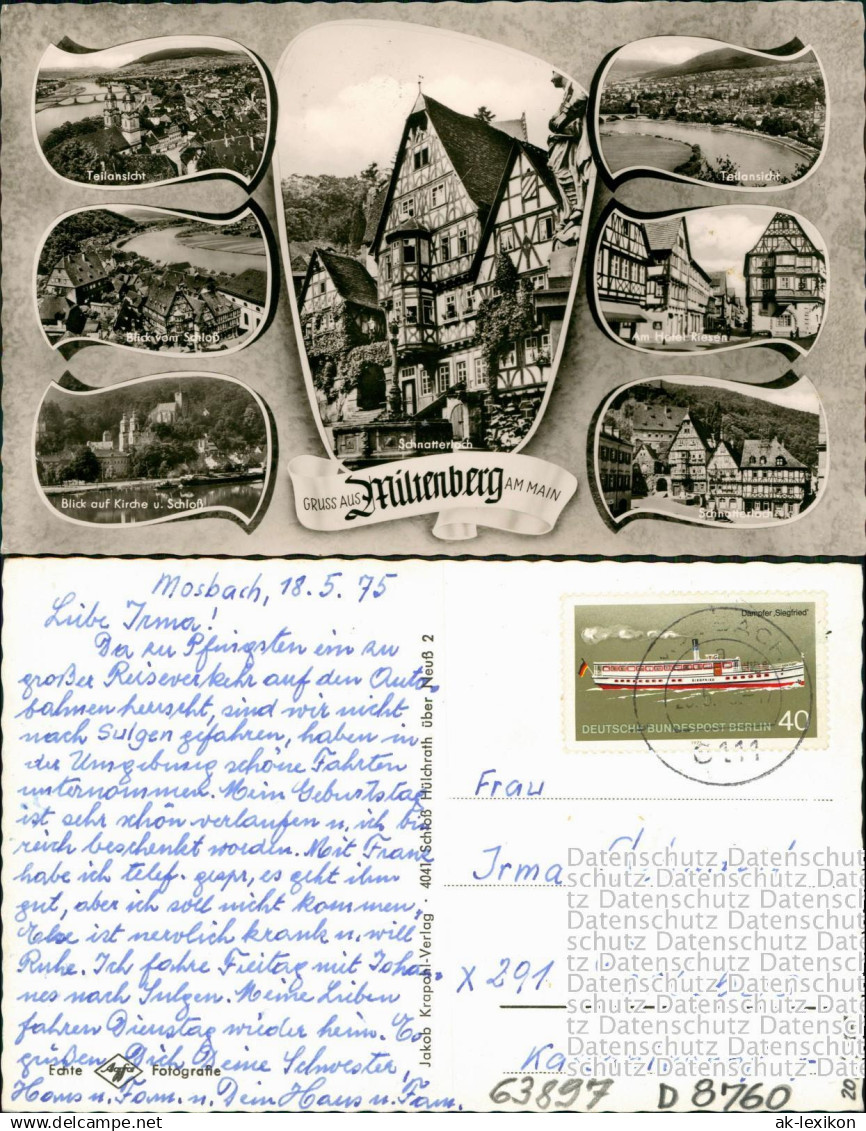 Teilansicht
Teilansicht
Blick vom Schloß
Am Hotel Riesen
Schnatterloch
Blick auf Kirche u. Schloß
Schnatterloch
GRUSS AUS Miltenberg AM MAIN
Mosbach, 18.5.75
Liebe Irma!
Da zu Pfingsten ein zu
großer Reiseverkehr auf den Auto-
bahnen herrscht, sind wir nicht
nach Sulgen gefahren, haben in
der Umgebung schöne Fahrten
unternommen. Mein Geburtstag
ist sehr schön verlaufen u. ich bin
reich beschenkt worden. Mit Franz
habe ich telef. gespr, es geht ihm
gut, aber ich soll nicht kommen,
Else ist nervlich krank u. will
Ruhe. Ich fahre Freitag mit Johan-
nes nach Sulgen. Meine Lieben
fahren Dienstag wieder heim. Es
grüßen Dich Deine Schwester,
Hans u. Fam. u. Dein Hans u. Fam.
Echte Agfa Fotografie
Jakob Krapohl-Verlag · 4041 Schloß Hülchrath über Neuß 2
Dampfer „Siegfried"
SIEGFRIED
DEUTSCHE BUNDESPOST BERLIN 40
Frau
Irma
x 291
Datenschutz Datenschutz
schutz Datenschutz Daten
tz Datenschutz Datenschu
Datenschutz Datenschutz
schutz Datenschutz Daten
tz Datenschutz Datenschu
Datenschutz Datenschutz
schutz Datenschutz Daten
tz Datenschutz Datenschu
Datenschutz Datenschutz
schutz Datenschutz Daten
tz Datenschutz Datenschu
Datenschutz Datenschutz
schutz Datenschutz Daten
63897 D 8760
ak-lexikon